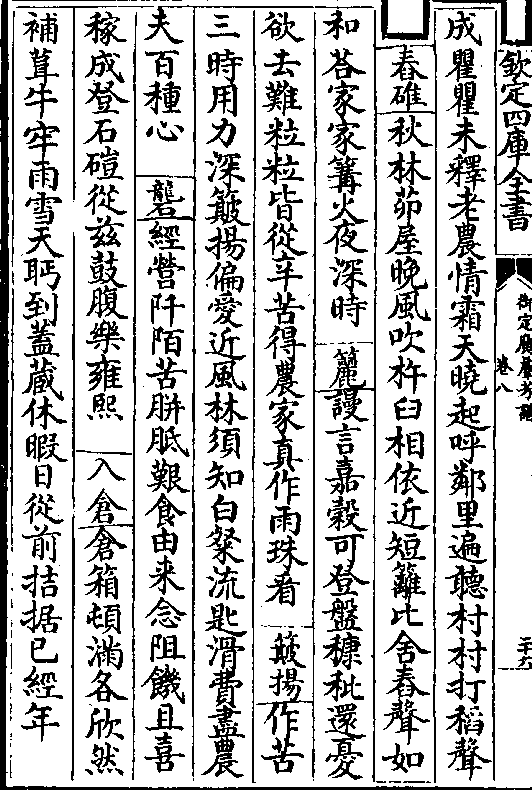 欽定四庫全書
御定廣羣芳譜
卷八
成瞿瞿未釋老農情霜天曉起呼鄰里遍聽村村打稻聲
舂碓秋林茆屋晚風吹杵臼相依近短籬比舍舂聲如
和荅家家篝火夜深時 簏謾言嘉穀可登盤糠秕還憂
欲去難粒粒皆從辛苦得農家真作雨珠看 簸揚作苦
三時用力深簸揚偏愛近風林須知白粲流匙滑費盡農
夫百種心 礱經營阡陌苦胼胝艱食由来念阻饑且喜
稼成登石磑從兹鼓腹樂雍熙 入倉倉箱頓滿各欣然
補葺牛牢雨雪天盻到蓋藏休暇日從前拮据已經年